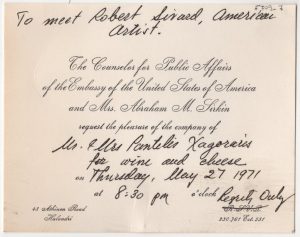 To meet Robert Sivard, American
Artist.
The Counselor for Public Affairs
of the Embassy of the United States of America
and Mrs. Abraham M. Sirkin
request the pleasure of the company of
Mr. & Mrs Pantelis Xagoraris
for wine and cheese
on Thursday, May 27 1971
at 8:30 pm o'clock
Regrets Only
R.S.V.P.
43 Athinon Road
Halandri
Ext. 331